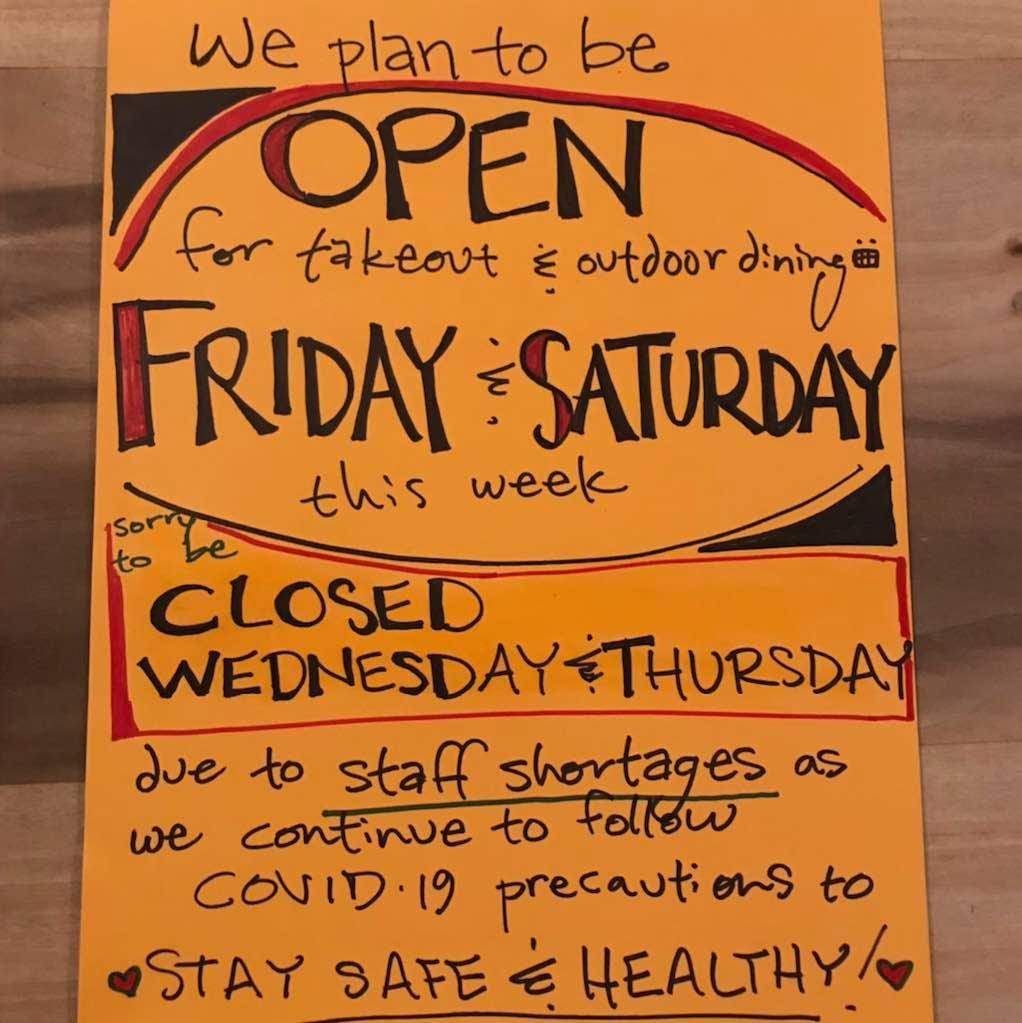 We plan to be
OPEN
for takeout & outdoor dining
FRIDAY & SATURDAY
this week
sorry
to be
CLOSED
WEDNESDAY & THURSDAY
due to staff shortages as
we continue to follow
COVID-19 precautions to
STAY SAFE & HEALTHY!